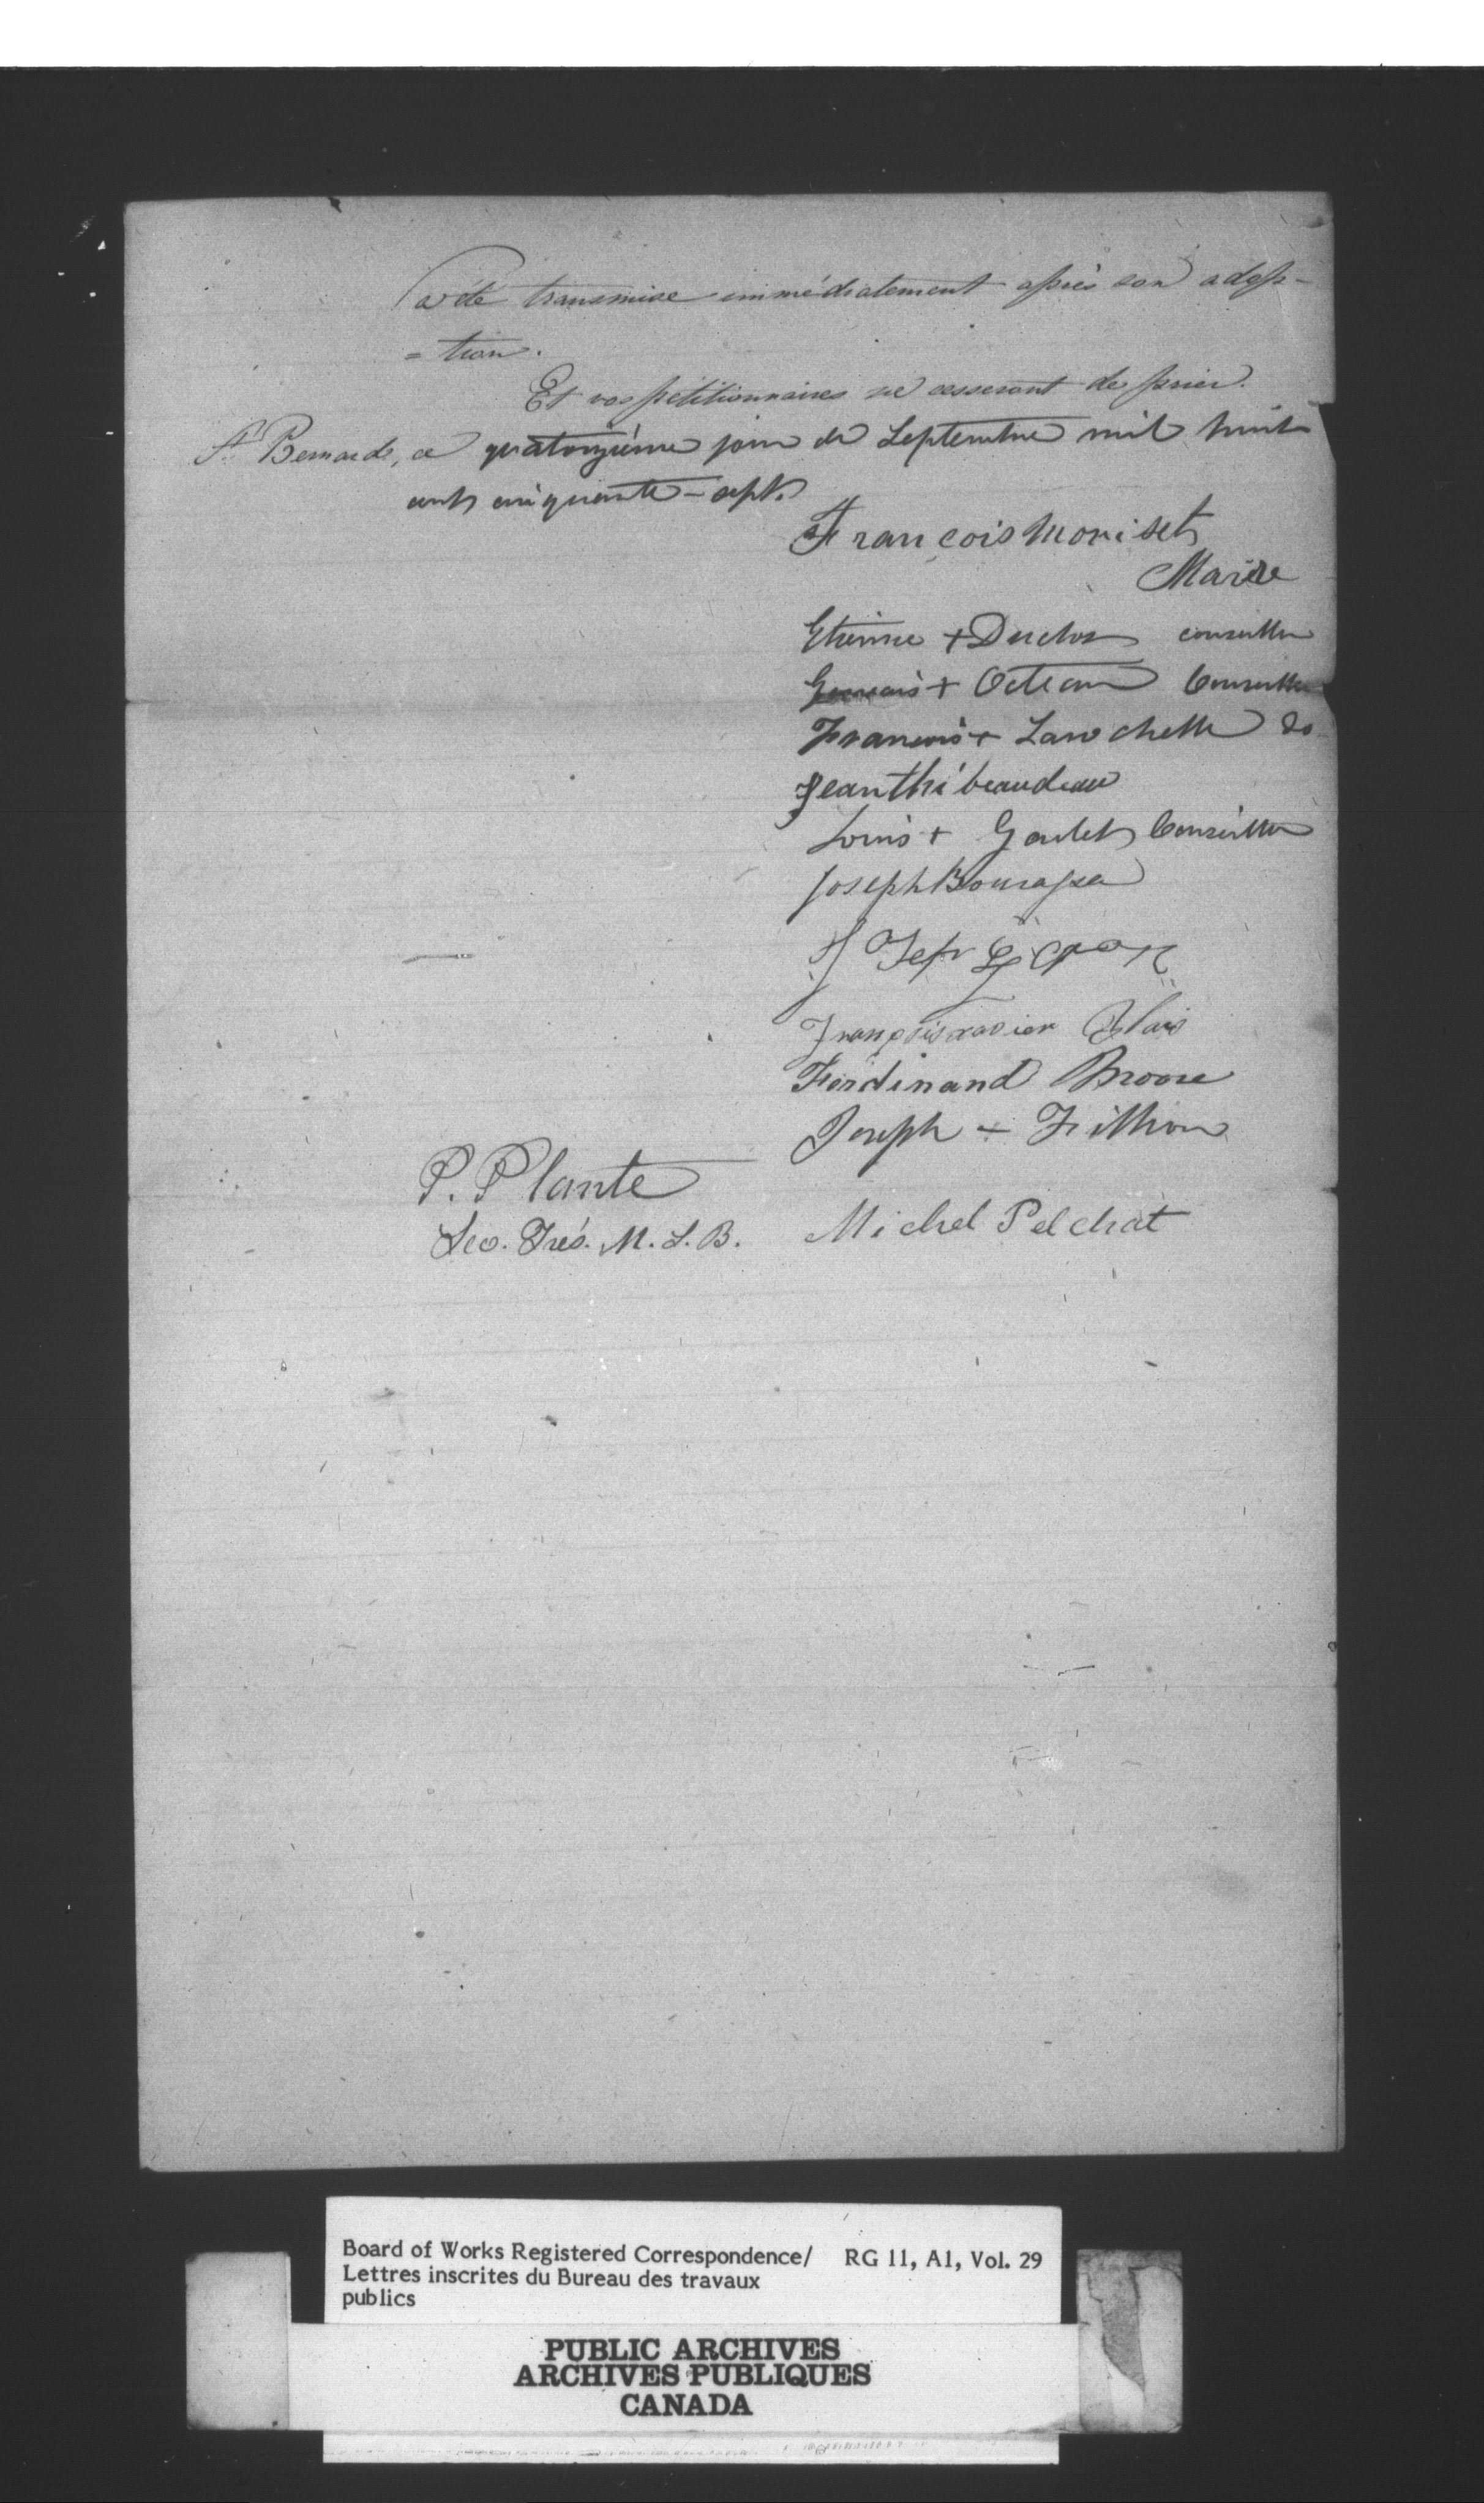 a été transmise immédiatement après son adop-
= tion.
Et vos pétitionnaires ne cesseront de prier.
St Bernard, ce quatorzième jour de Septembre mil huit
cents cinquante-sept.
François Moriset
Maire
Etienne + Duclos conseiller
Gervais + Octeau Conseiller
François + Larochelle do
Jean thibeaudeau
Louis + Goulet Conseiller
Joseph Bourassa
François xavier Blais
Ferdinand Moore
Joseph + Fillion
P. Plante
Sec. Trés. M. S. B.
Michel Pelchat
Board of Works Registered Correspondence/ RG 11, A1, Vol. 29
Lettres inscrites du Bureau des travaux
publics
PUBLIC ARCHIVES
ARCHIVES PUBLIQUES
CANADA